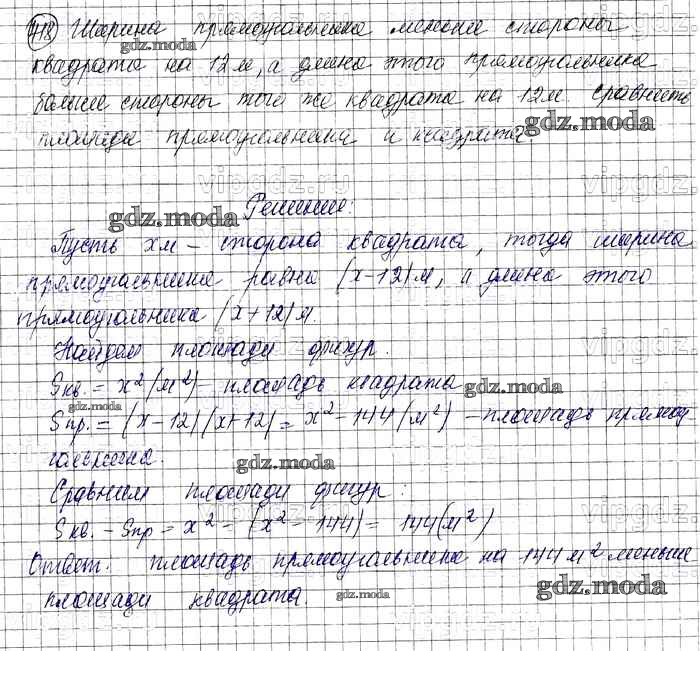 718 Ширина прямоугольника меньше стороны
квадрата на 12 м, а длина этого прямоугольника
больше стороны того же квадрата на 12 м. Сравнить
площади прямоугольника и квадрата.
Решение:
Пусть x м – сторона квадрата, тогда ширина
прямоугольника равна (x-12) м, а длина этого
прямоугольника (x+12) м.
Найдем площади фигур.
Sкв. = x² (м²) – площадь квадрата
Sпр. = (x-12)(x+12) = x² - 144 (м²) – площадь прямоу-
гольника.
Сравним площади фигур:
Sкв. - Sпр = x² - (x² - 144) = 144 (м²)
Ответ. площадь прямоугольника на 144 м² меньше
площади квадрата.
vipgdz.ru
gdz.moda